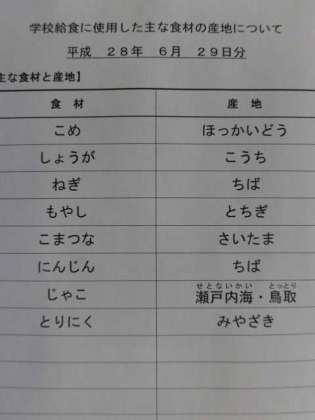 学校給食に使用した主な食材の産地について
平成 28年 6月 29日分
主な食材と産地】
食材 産地
こめ ほっかいどう
しょうが こうち
ねぎ ちば
もやし とちぎ
こまつな さいたま
にんじん ちば
せとないかい とっとり
じゃこ 瀬戸内海・鳥取
とりにく みやざき